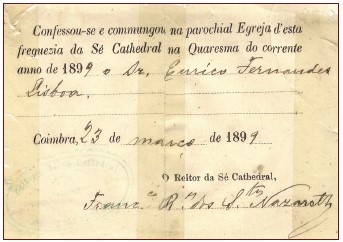 Confessou-se e commungou na parochial Egreja d'esta
freguezia da Sé Cathedral na Quaresma do corrente
anno de 1899 o Dr. Eurico Fernandes
Lisboa.
Coimbra, 23 de março de 1899
O Reitor da Sé Cathedral,
Franc.co R. dos S.tos Nazareth